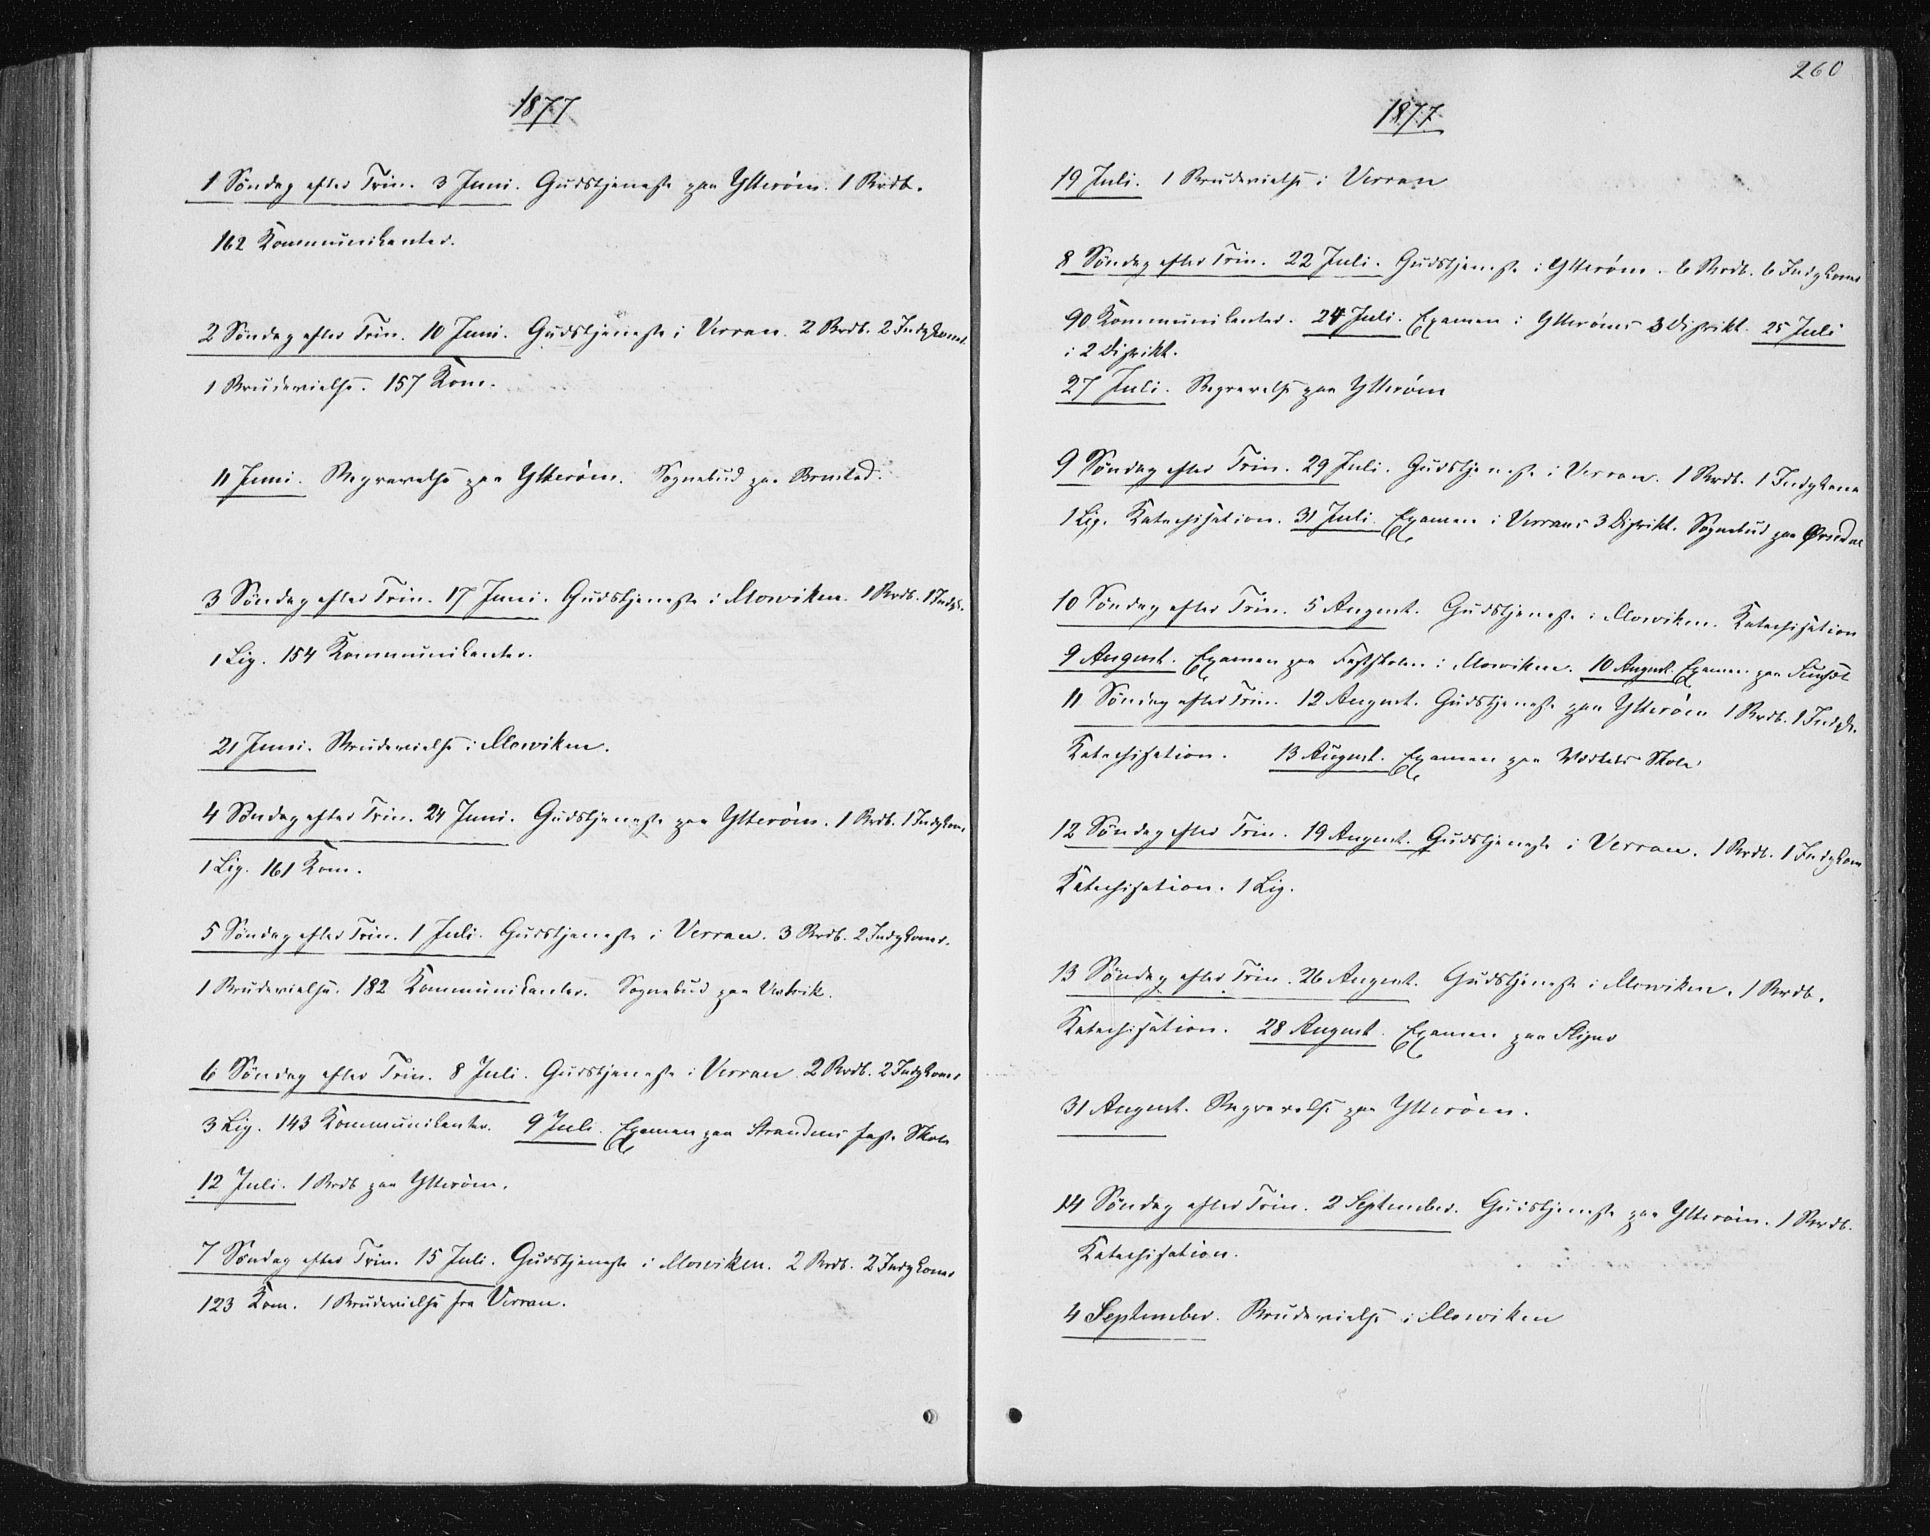 1877
1 Søndag efter Trin. 3 Juni. Gudstjeneste paa Ytterøen. 1 Brdb.
162 Kommunikanter.
2 Søndag efter Trin. 10 Juni. Gudstjeneste i Verran. 2 Brdb. 2 Indgkoner.
1 Brudevielse. 157 Kom.
11 Juni. Begravelse paa Ytterøen. Sognebud paa
3 Søndag efter Trin. 17 Juni. Gudstjeneste i Mosviken. 1 Brdb. 1 Indgk.
1 Lig. 154 Kommunikanter.
21 Juni. Brudevielse i Mosviken.
4 Søndag efter Trin. 24 Juni. Gudstjeneste paa Ytterøen. 1 Brdb. 1 Indgkone
1 Lig. 161 Kom.
5 Søndag efter Trin. 1 Juli. Gudstjeneste i Verran. 3 Brdb. 2 Indgkoner.
1 Brudevielse. 182 Kommunikanter. Sognebud paa
6 Søndag efter Trin. 8 Juli. Gudstjeneste i Verran 2 Brdb. 2 Indgkoner
3 Lig. 143 Kommunikanter. 9 Juli. Examen paa Strandens faste Skole
12 Juli. 1 Brdb paa Ytterøen.
7 Søndag efter Trin. 15 Juli. Gudstjeneste i Mosviken. 2 Brdb. 2 Indgkoner
123 Kom. 1 Brudevielse fra Verran.
260
1877
19 Juli. 1 Brudevielse i Verran
8 Søndag efter Trin. 22 Juli. Gudstjeneste i Ytterøen. 6 Brdb. 6 Indgkoner
90 Kommunikanter. 24 Juli. Examen i Ytterøens 3 Distrikt. 25 Juli
i 2 Distrikt.
27 Juli. Begravelse paa Ytterøen
9 Søndag efter Trin. 29 Juli. Gudstjeneste i Verran. 1 Brdb. 1 Indgkone
1 Lig. Katechisation. 31 Juli. Examen i Verrans 3 Distrikt. Sognebud paa
10 Søndag efter Trin. 5 August. Gudstjeneste i Mosviken. Katechisation
9 August. Examen paa Fastskolen i Mosviken. 10 August. Examen paa
11 Søndag efter Trin. 12 August. Gudstjeneste paa Ytterøen 1 Brdb. 1 Indgk.
Katechisation. 13 August. Examen paa Skole.
12 Søndag efter Trin. 19 August. Gudstjeneste i Verran. 1 Brdb. 1 Indgkone
Katechisation. 1 Lig.
13 Søndag efter Trin. 26 August. Gudstjeneste i Mosviken. 1 Brdb.
Katechisation. 28 August. Examen paa
31 August. Begravelse paa Ytterøen.
14 Søndag efter Trin. 2 September. Gudstjeneste paa Ytterøen. 1 Brdb.
Katechisation.
4 September. Brudevielse i Mosviken